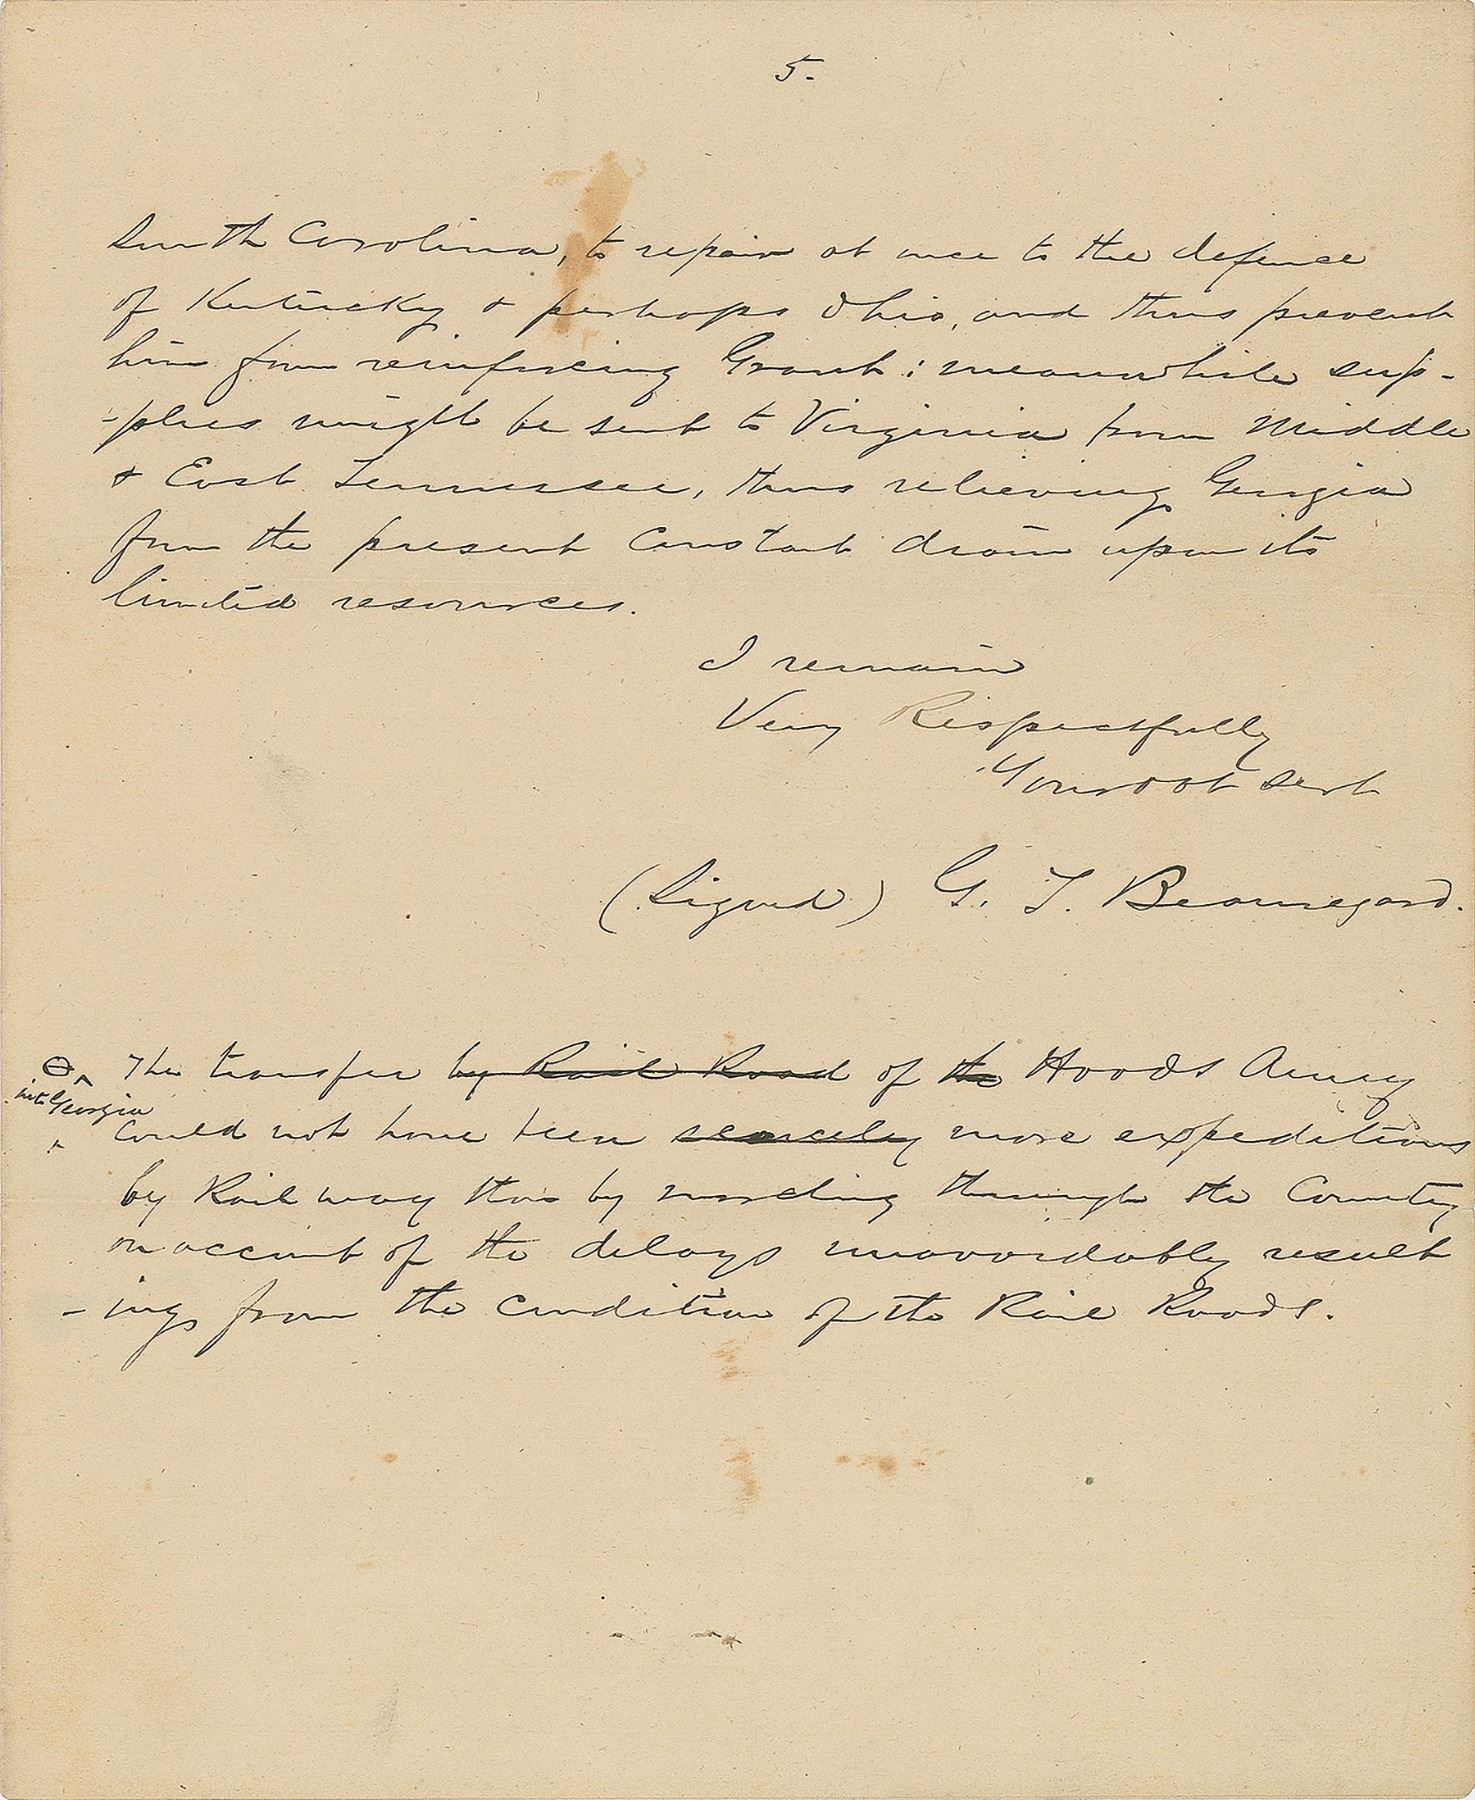 5.
South Carolina, to repair at once to the defence
of Kentucky & perhaps Ohio, and thus prevent
him from reinforcing Grant: meanwhile sup-
-plies might be sent to Virginia from Middle
& East Tennessee, thus relieving Georgia
from the present constant drain upon its
limited resources.
I remain
Very Respectfully
Your obt servt
(Signed) G. T. Beauregard.
The transfer by Rail Road of the Hoods Army
into Georgia
could not have been scarcely more expeditious
by Rail way than by marching through the Country
on account of the delays unavoidably result
-ing from the condition of the Rail Roads.